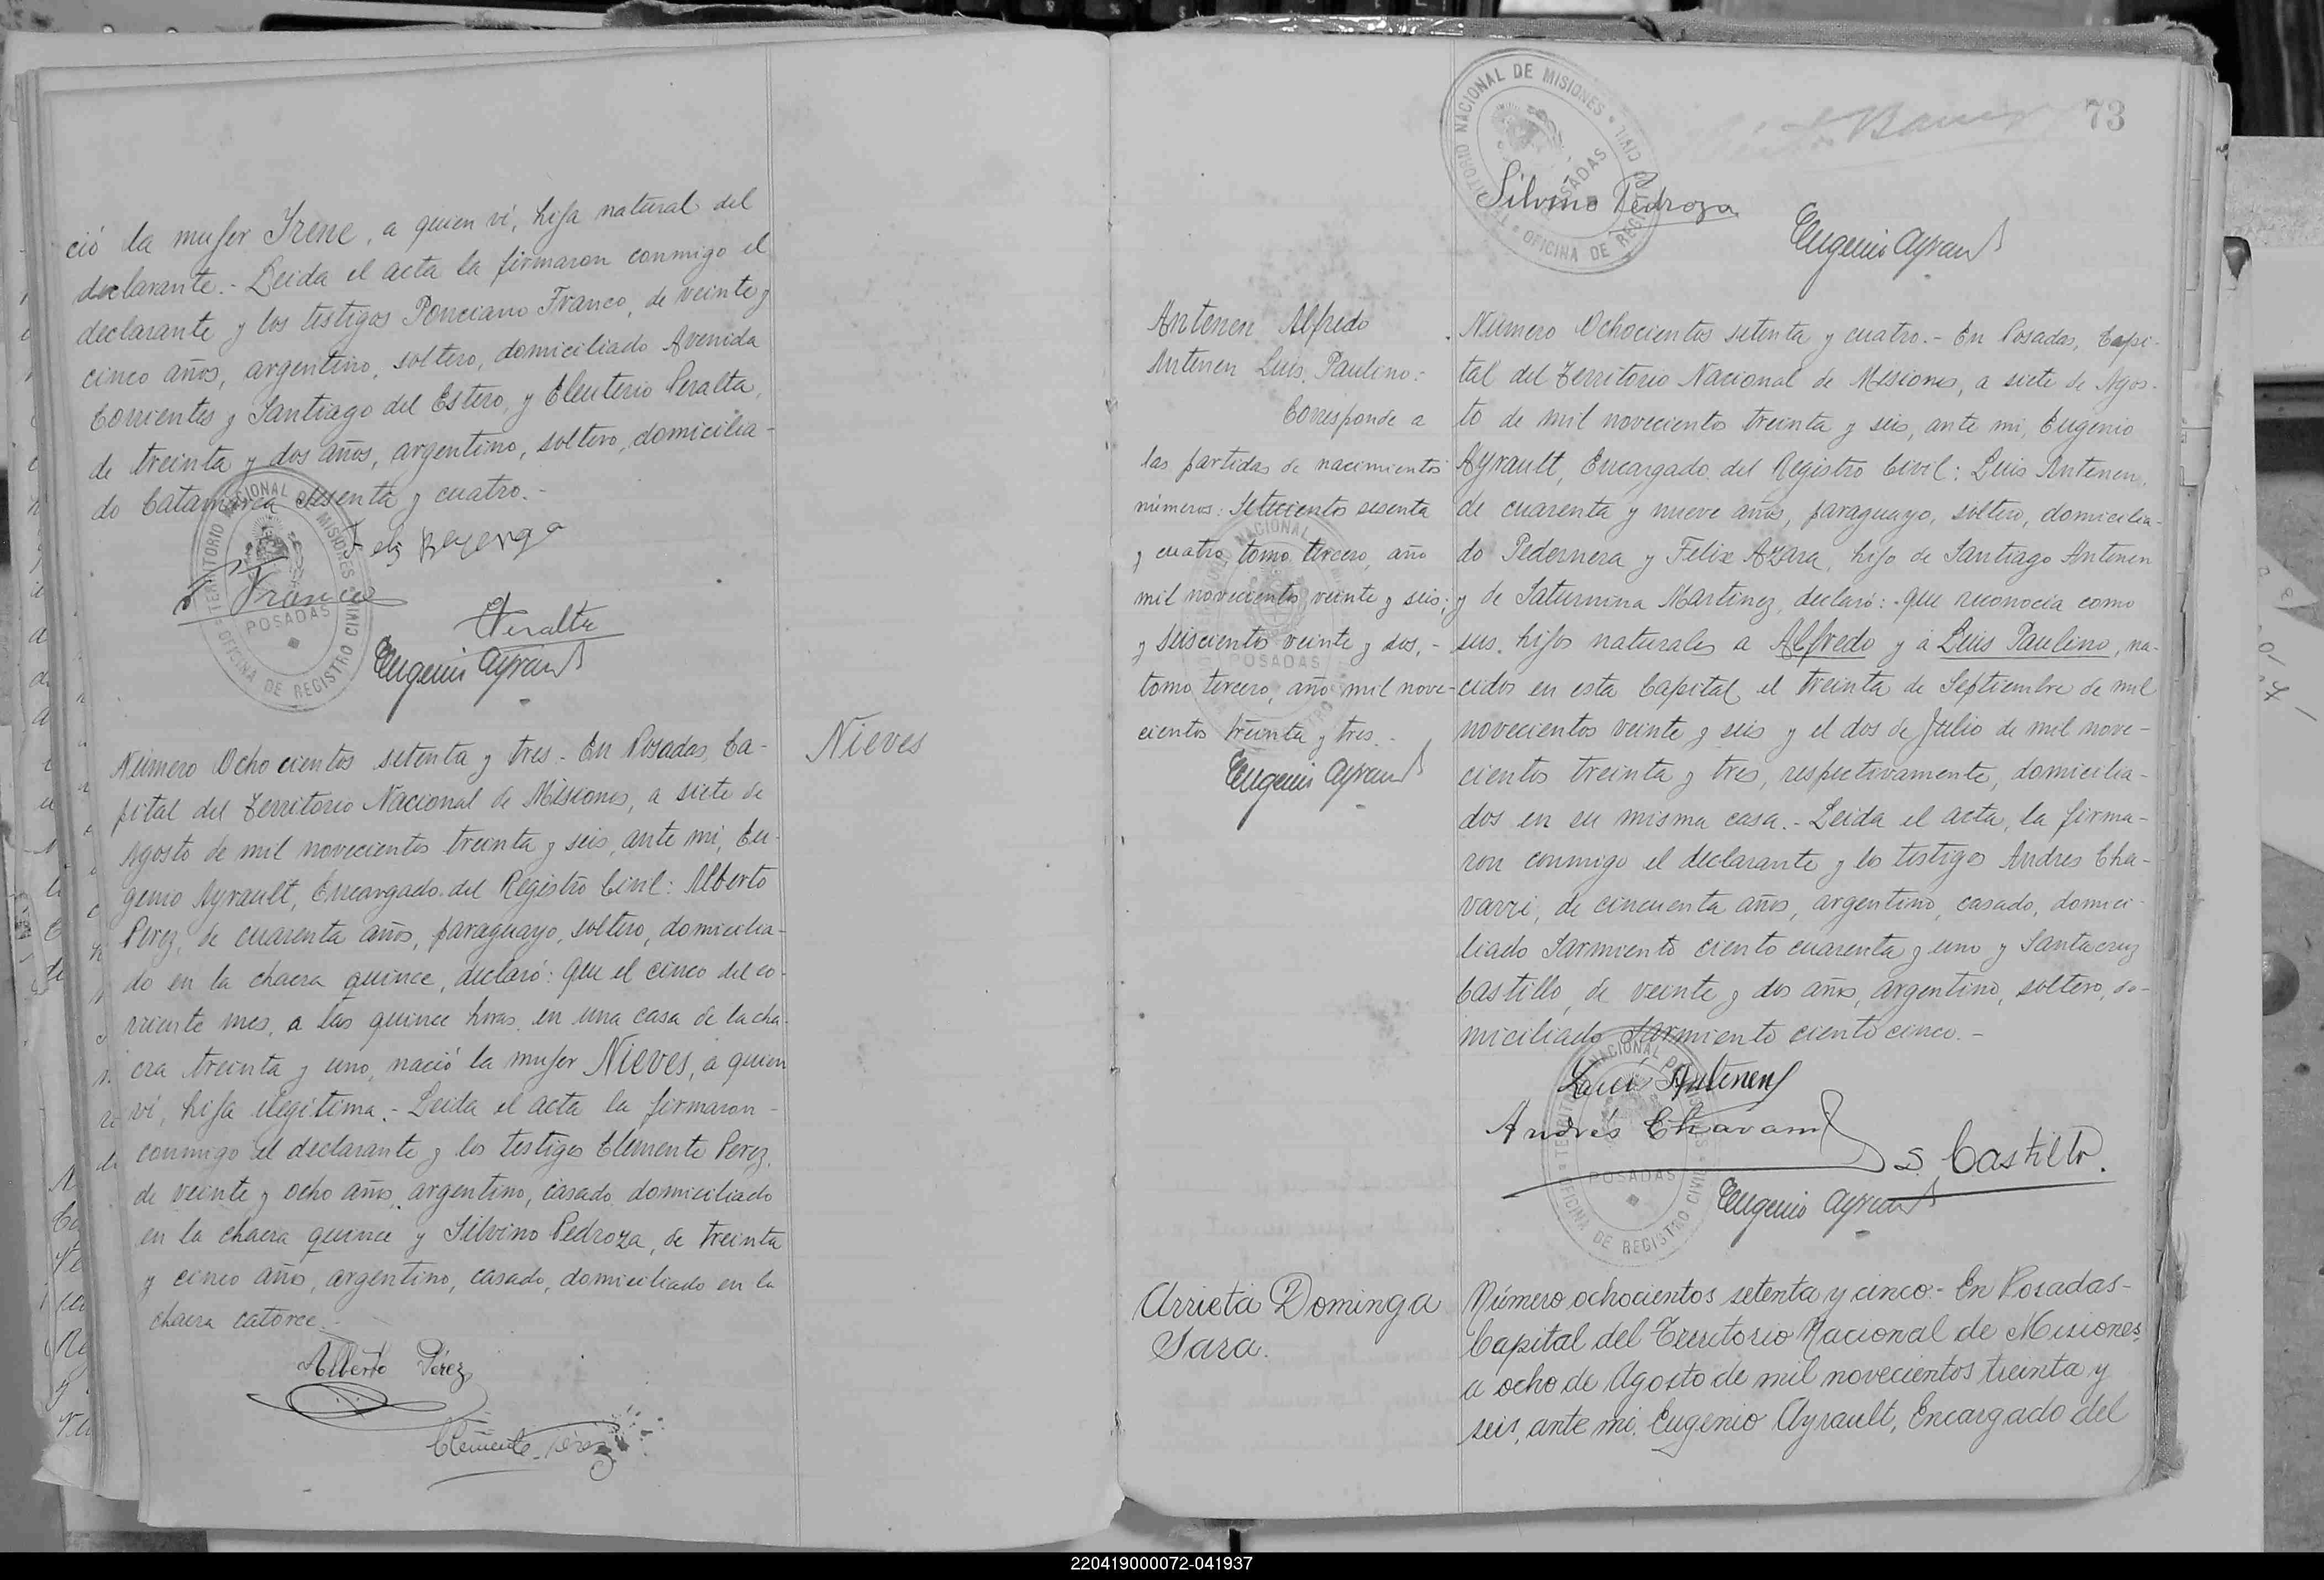 ció la mujer Irene, a quien ví, hija natural del
declarante.- Leida el acta la firmaron conmigo el
declarante y los testigos Ponciano Franco, de veinte y
cinco años, argentino, soltero, domiciliado Avenida
Corrientes y Santiago del Estero, y Eleuterio Peralta,
de treinta y dos años, argentino, soltero, domicilia-
do Catamarca sesenta y cuatro.-
F Franco
EPeralta
Eugenio Ayrault
TERRITORIO NACIONAL DE MISIONES
POSADAS
OFICINA DE REGISTRO CIVIL
Número Ochocientos setenta y tres.- En Posadas, Ca-
pital del Territorio Nacional de Misiones, a siete de
Agosto de mil novecientos treinta y seis, ante mi, Eu-
genio Ayrault, Encargado del Registro Civil: Alberto
Perez, de cuarenta años, paraguayo, soltero, domicilia-
do en la chacra quince, declaró: que el cinco del co-
rriente mes, a las quince horas, en una casa de la cha-
cra treinta y uno, nació la mujer Nieves, a quien
ví, hija ilegitima.- Leida el acta la firmaron
conmigo el declarante y los testigos Clemente Perez,
de veinte y ocho años, argentino, casado domiciliado
en la chacra quince y Silvino Pedroza, de treinta
y cinco años, argentino, casado, domiciliado en la
chacra catorce.-
Alberto Pérez
Clemente Pérez
Nieves
73
TERRITORIO NACIONAL DE MISIONES
POSADAS
OFICINA DE REGISTRO CIVIL
Silvino Pedroza
Eugenio Ayrault
Antenen Alfredo
Antenen Luis Paulino:-
Corresponde a
las partidas de nacimientos
números: Setecientos sesenta
y cuatro, tomo tercero, año
mil novecientos veinte y seis;
y seiscientos veinte y dos,-
tomo tercero, año mil nove-
cientos treinta y tres.-
Eugenio Ayrault
Número Ochocientos setenta y cuatro.- En Posadas, Capi-
tal del Territorio Nacional de Misiones, a siete de Agos-
to de mil novecientos treinta y seis, ante mi, Eugenio
Ayrault, Encargado del Registro Civil: Luis Antenen,
de cuarenta y nueve años, paraguayo, soltero, domicilia-
do Pedernera y Felix Azara, hijo de Santiago Antenen
y de Saturnina Martinez, declaró:- que reconocia como
sus hijos naturales a Alfredo y á Luis Paulino, na-
cidos en esta Capital el treinta de Septiembre de mil
novecientos veinte y seis y el dos de Julio de mil nove-
cientos treinta y tres, respectivamente, domicilia-
dos en su misma casa.- Leida el acta, la firma-
ron conmigo el declarante y los testigos Andres Cha-
varri, de cincuenta años, argentino, casado, domici-
liado Sarmiento ciento cuarenta y uno y Santacruz
Castillo, de veinte y dos años, argentino, soltero, do-
miciliado Sarmiento ciento cinco.-
Luis Antenen
Andrés Chavarri
S. Castillo.
Eugenio Ayrault
TERRITORIO NACIONAL DE MISIONES
POSADAS
OFICINA DE REGISTRO CIVIL
Arrieta Dominga
Sara.
Número ochocientos setenta y cinco.- En Posadas-
Capital del Territorio Nacional de Misiones,
a ocho de Agosto de mil novecientos treinta y
seis, ante mi, Eugenio Ayrault, Encargado del
220419000072-041937